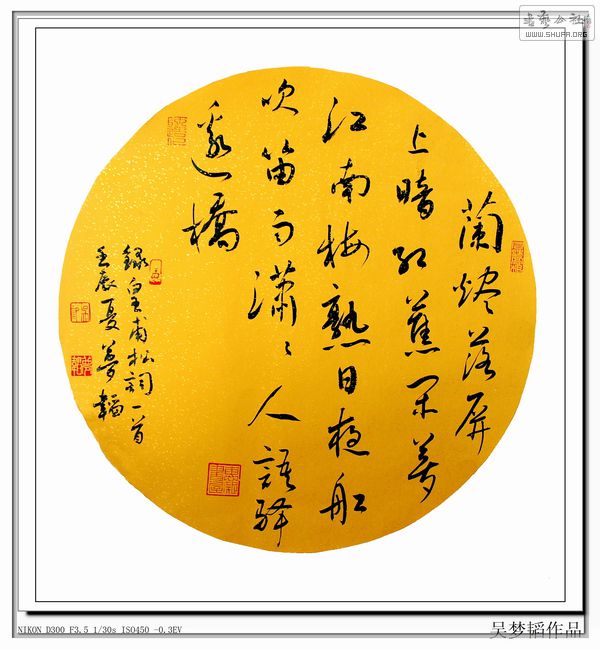 書藝公社
WWW.SHUFA.ORG
蘭燼落屏
上暗紅蕉閑夢
江南梅熟日夜船
吹笛雨瀟々人語驛
邊橋
錄皇甫松詞一首
壬辰夏夢韜
NIKON D300 F3.5 1/30s ISO450 -0.3EV
吴梦韬作品